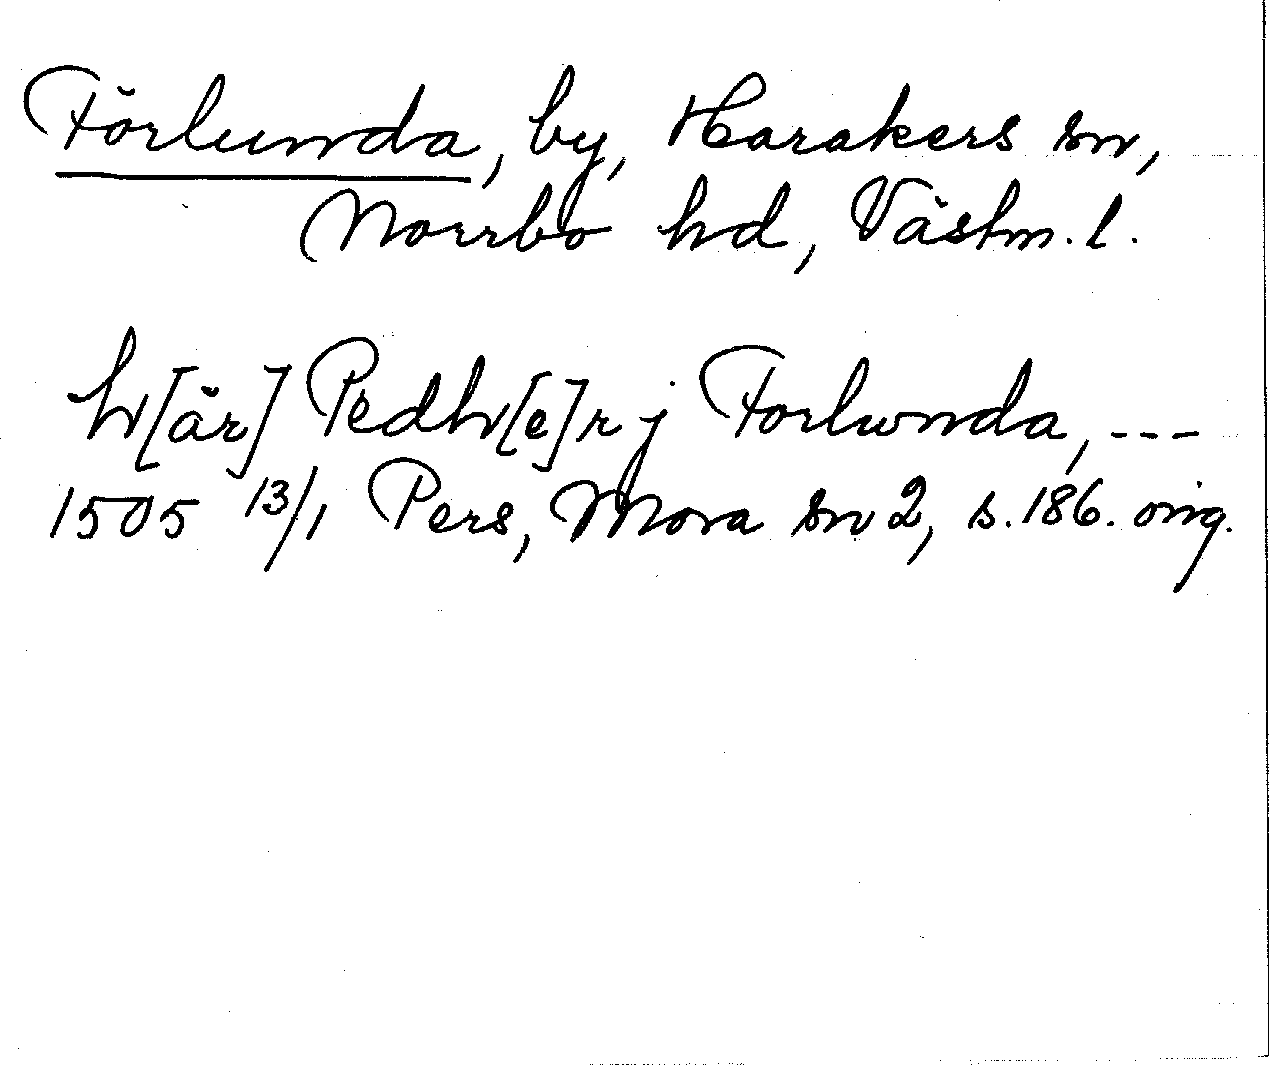 Förlunda, by, Harakers sn,
Norrbo hd, Västm. l.
h[är] Pedh[e]r j Forlunda, ---
1505 13/1 Pers, Mora sn 2, s. 186. orig.